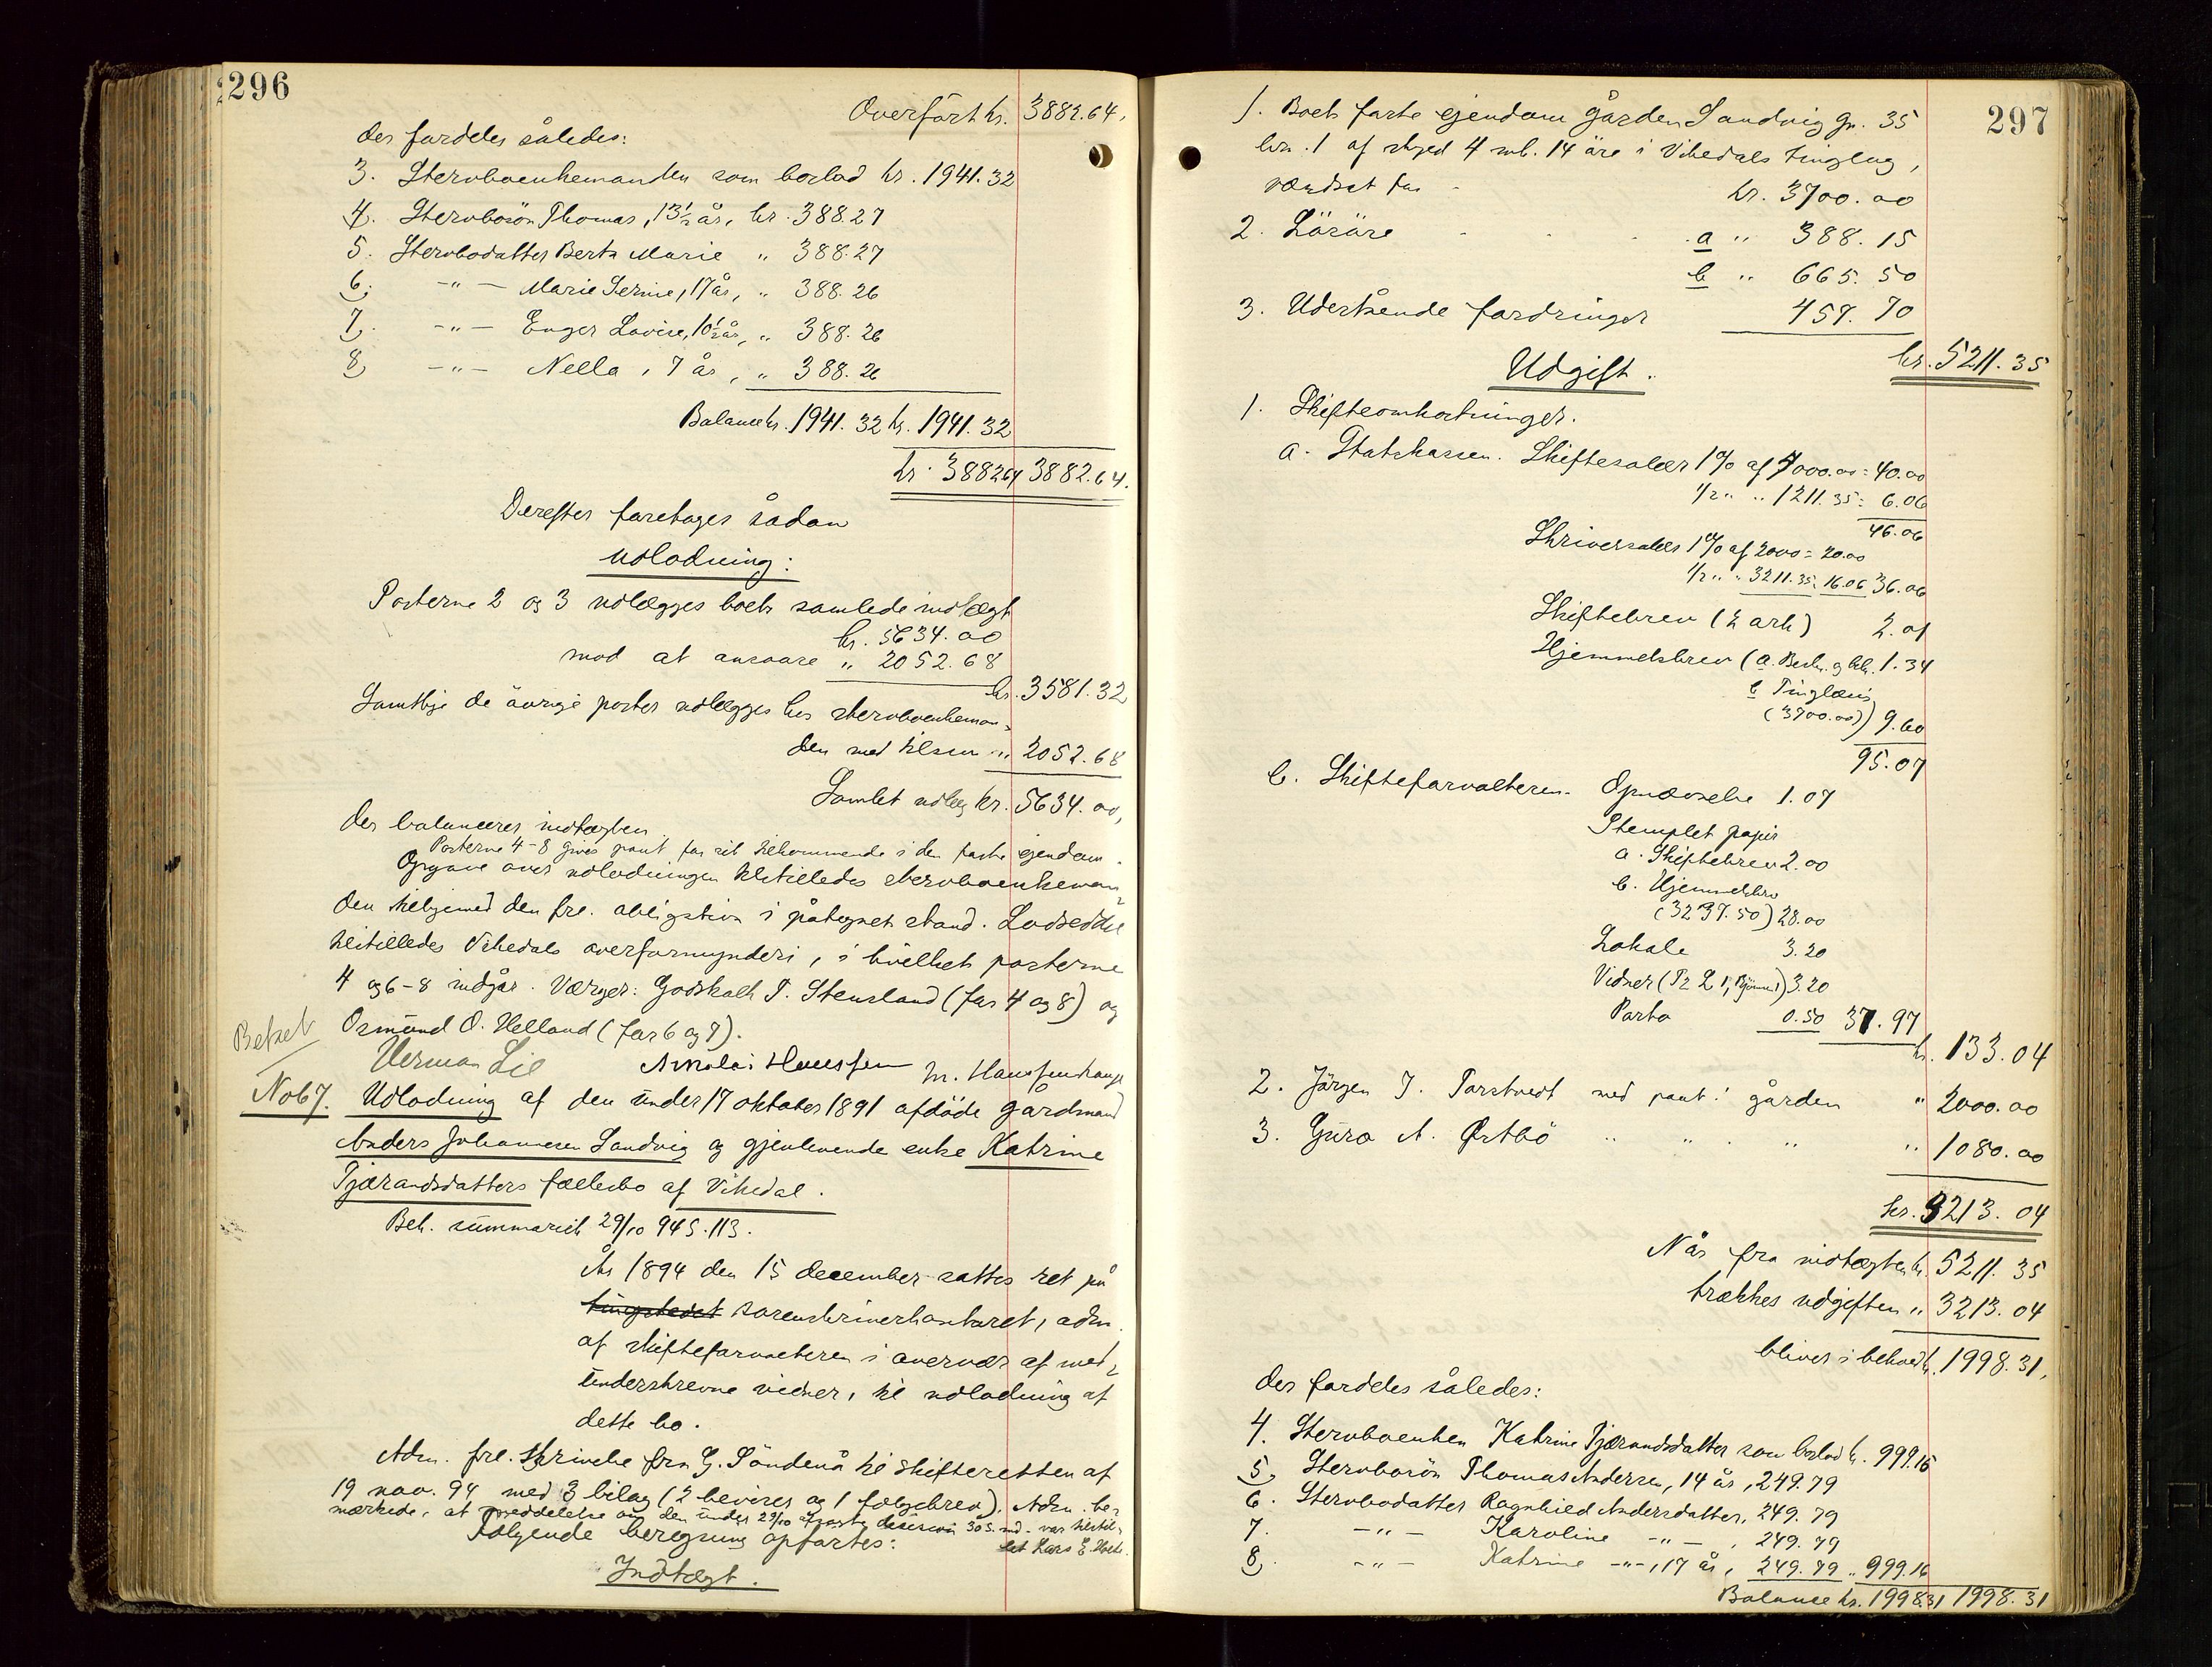 296
Overført kr. 3882.64.
der fordeles således:
3. Stervboenkemanden som boslod kr. 1941.32
4. Stervbosön Thomas, 13½ år, kr. 388.27
5. Stervbodatter Berta Marie " 388.27
6. -"- Marie Serine, 17 år, " 388.26
7. -"- Enger Lovise, 10½ år, " 388.26
8. -"- Nella, 7 år, " 388.26
Balance kr. 1941.32 kr. 1941.32
kr. 3882.64 3882.64.
Derefter foretages sådan
Udlodning:
Posterne 2 og 3 udlægges boets samlede indtægt
kr. 5634.00
mod at ansvare " 2052.68
kr. 3581.32
Samtlige de övrige poster udlægges hos stervboenkeman-
den med tilsam " 2052.68
Samlet udlæg kr. 5634.00,
der balancerer indtægten.
Posterne 4-8 gives pant for sit tilkommende i den faste ejendom.
Opgave over udlodningen tilstilledes stervboenkeman-
den tilligemed den fre. obligation i påtegnet stand. Lodseddel
tilstilledes Vikedals overformynderi, i hvilket posterne
4 og 6-8 indgår. Værger: Godskalk T. Stensland (for 4 og 8) og
Osmund O. Helland (for 6 og 7).
Betalt
Herman Lie Nikolai Hanssen M. Hanssen Hauge
No 67. Udlodning af den under 17 oktober 1891 afdöde gårdmand
Anders Johannesen Sandvig og gjenlevende enke Katrine
Tjærandsdatters fællesbo af Vikedal.
Beh. summarisk 29/10 94 S. 113.
År 1894 den 15 december sattes ret på
tingstedet sorenskriverkontoret, adm.
af skifteforvalteren i overvær af med-
underskrevne vidner, til udlodning af
dette bo.
Adm. fre. skrivelse fra G. Söndenå til skifteretten af
19 nov. 94 med 3 bilag (2 beviser og 1 følgebrev). Adm. be-
mærkede, at meddelelse om den under 29/10 afsagte decision 30 S. ind. var tilstil-
let Lars E.
Følgende beregning opførtes:
Indtægt.
297
1. Boets faste ejendom gården Sandvig gn. 35
brn. 1 af skyld 4 mk. 14 öre i Vikedals tinglag,
værdsat for kr. 3700.00
2. Lösöre a " 388.15
b " 665.50
3. Udestående fordringer 457.70
kr. 5211.35
Udgift.
1. Skifteomkostninger.
a. Statskassen. Skiftesalær 1% af 4000.00 = 40.00
½ " " 1211.35 = 6.06
46.06
Skriversalær 1% af 2000 = 20.00
½ " " 3211.35 = 16.06 36.06
Skiftebrev (2 ark) 2.01
Hjemmelsbrev (a. Besk. og bek. 1.34
b Tinglæsn.
(3700.00)) 9.60
95.07
b. Skifteforvalteren. Opnævnelse 1.07
Stemplet papir
a. Skiftebrev 2.00
b. Hjemmelsbrev
(3237.50) 28.00
Lokale 3.20
Vidner 3.20
Porto 0.50 37.97
kr. 133.04
2. Jörgen J. Torstvedt med pant i gården " 2000.00
3. Guro A. Østbö " " " " 1080.00
kr. 3213.04
Når fra indtægten kr. 5211.35
trækkes udgiften " 3213.04
bliver i behold kr. 1998.31,
der fordeles således:
4. Stervboenken Katrine Tjærandsdatter som boslod kr. 999.15
5. Stervbosön Thomas Andersen, 14 år, 249.79
6. Stervbodatter Ragnhild Andersdatter, 249.79
7. -"- Karoline -"-, 249.79
8. -"- Katrine -"-, 17 år, 249.79 " 999.16
Balance kr. 1998.31 1998.31